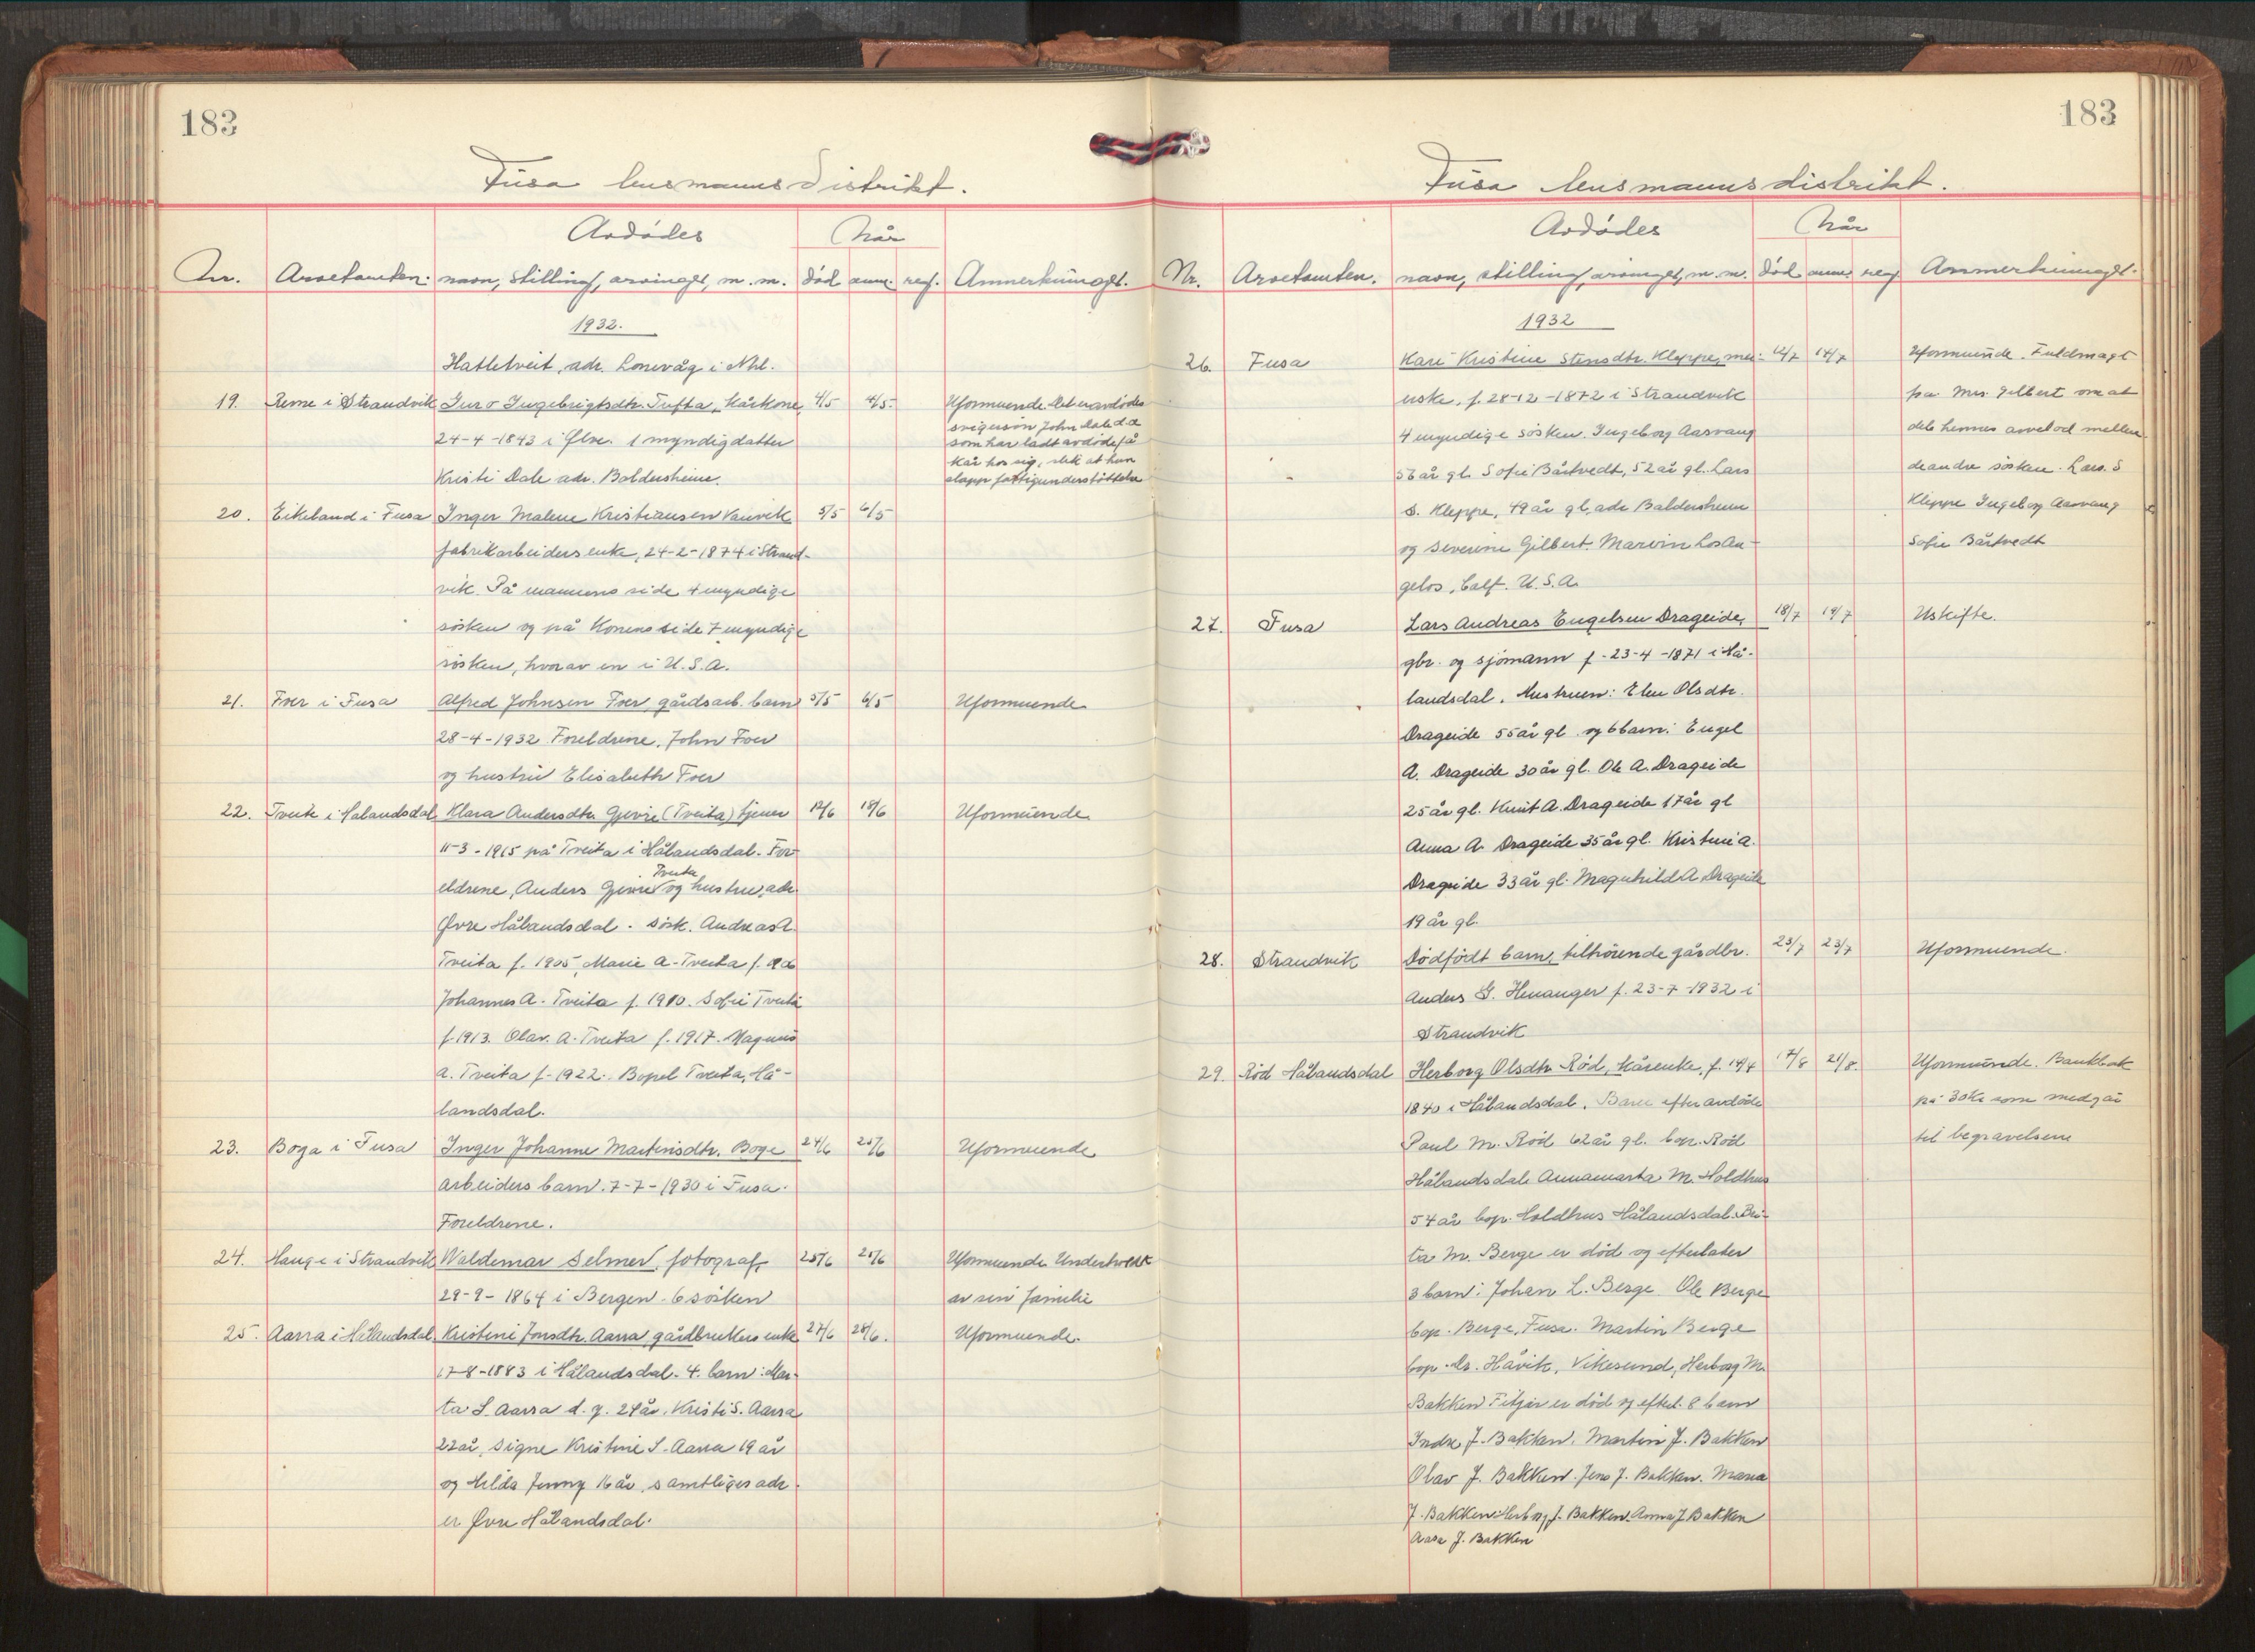 183
Fusa lensmannsdistrikt.
Avdødes
Når
Nr. Arvetomten. navn, stilling, arvinger, m. m. død anm. reg. Anmerkninger.
1932.
Hatletveit, adr. Lonevåg i Nhl.
19. Reme i Strandvik Guro Ingebrigtsdtr. Tufta, kårkone, 4/5 4/5. Uformuende. Det er avdødes
svigersøn John Dale d.d.
24-4-1843 i Ølve. 1 myndig datter som har ladt avdøde få
kår hos sig, slik at hun
Kristi Dale adr. Baldersheim. slapp fattigunderstøttelse
20. Eikeland i Fusa Inger Malene Kristiansen Vanvik 5/5 6/5
fabrikarbeiders enke, 24-2-1874 i Strand-
vik. På mannens side 4 myndige
søsken og på Konens side 7 myndige
søsken, hvorav en i U.S.A.
21. Foer i Fusa Alfred Johnsen Foer, gårdsarb. barn 5/5 6/5 Uformuende
28-4-1932 Foreldrene. John Foer
og hustru Elisabeth Foer
22. Tveite i Hålandsdal Klara Andersdtr. Gjevre (Tveita) tjener 12/6 18/6 Uformuende
11-3-1915 på Tveita i Hålandsdal. For-
Tveita
eldrene, Anders Gjevre og hustru, adr.
Øvre Hålandsdal. Søsk. Andreas A.
Tveita f. 1905, Marie A. Tveita f.
Johannes A. Tveita f. 1910. Sofie Tveita
f. 1913. Olav. A. Tveita f. 1917. Magnus
A. Tveita f. 1922. Bopel Tveita, Hå-
landsdal.
23. Boga i Fusa Inger Johanne Martinsdtr. Boge 24/6 25/6 Uformuende
arbeiders barn. 7-7-1930 i Fusa.
Foreldrene.
24. Hauge i Strandvik Waldemar Selmer, fotograf, 25/6 25/6 Uformuende Understøttet
29-9-1864 i Bergen. 6 søsken av sin familie
25. Aarra i Hålandsdal. Kristine Jonsdtr. Aarra gårdbrukers enke 27/6 28/6. Uformuende.
17-8-1883 i Hålandsdal. 4 barn: Mar-
ta S. Aarra d. y. 24 år. Kristi S. Aarra
22 år, Signe Kristine S. Aarra 19 år
og Hilda Jenny 16 år, samtliges adr.
er Øvre Hålandsdal.
183
Fusa lensmannsdistrikt.
Avdødes
Når
Nr. Arvetomten. navn, stilling, arvinger, m. m. død anm. reg. Anmerkninger.
1932
26. Fusa Kari Kristine Stensdtr. Kleppe, mei- 12/7 14/7 Uformuende. Fuldmagt
erske, f. 28-12-1872 i Strandvik fra Mrs. Gilbert om at
4 myndige søsken. Ingeborg Aasvang dele hennes arvelod mellem
56 år gl. Sofie Bårtvedt, 52 år gl. Lars de andre søsken. Lars. S
S. Kleppe, 49 år gl, adr Baldersheim Kleppe Ingeborg Aasvang
og Severine Gilbert. Marvin Los An- Sofie Bårtvedt
gelos, Calf. U.S.A.
27. Fusa Lars Andreas Engelsen Drageide, 18/7 19/7 Uskifte.
gbr. og sjømann f. 23-4-1871 i Hå-
landsdal. Hustruen: Elen Olsdtr.
Drageide 55 år gl. og 6 barn: Engel
A. Drageide 30 år gl. Ole A. Drageide
25 år gl. Knut A. Drageide 17 år gl
Anna A. Drageide 35 år gl. Kristine A.
Drageide 33 år gl. Magnhild A Drageide
19 år gl.
28. Strandvik Dødfødt barn, tilhørende gårdbr. 23/7 23/7 Uformuende.
Anders G. Henanger f. 23-7-1932 i
Strandvik
29. Rød Hålandsdal Herborg Olsdtr Rød, kårenke, f. 14/4 17/8 21/8. Uformuende. Bankbok
1840 i Hålandsdal. Barn efter avdøde på 30 Kr som medgår
Paul M. Rød 62 år gl. bop. Rød til begravelsen
Hålandsdal. Annamarta M. Holdhus
54 år bop. Holdhus Hålandsdal. Bri-
ta M. Berge er død og efterlater
3 barn: Johan L. Berge Ole Berge
bop. Berge, Fusa. Martin Berge
bop. Håvik, Vikesund, Herborg M.
Bakken Fitjar er død og efterl. 8 barn
Indre J. Bakken. Martin J. Bakken
Olav J. Bakken. Jens J. Bakken. Maria
J. Bakken. Herborg J. Bakken. Anna J. Bakken
Aasa J. Bakken